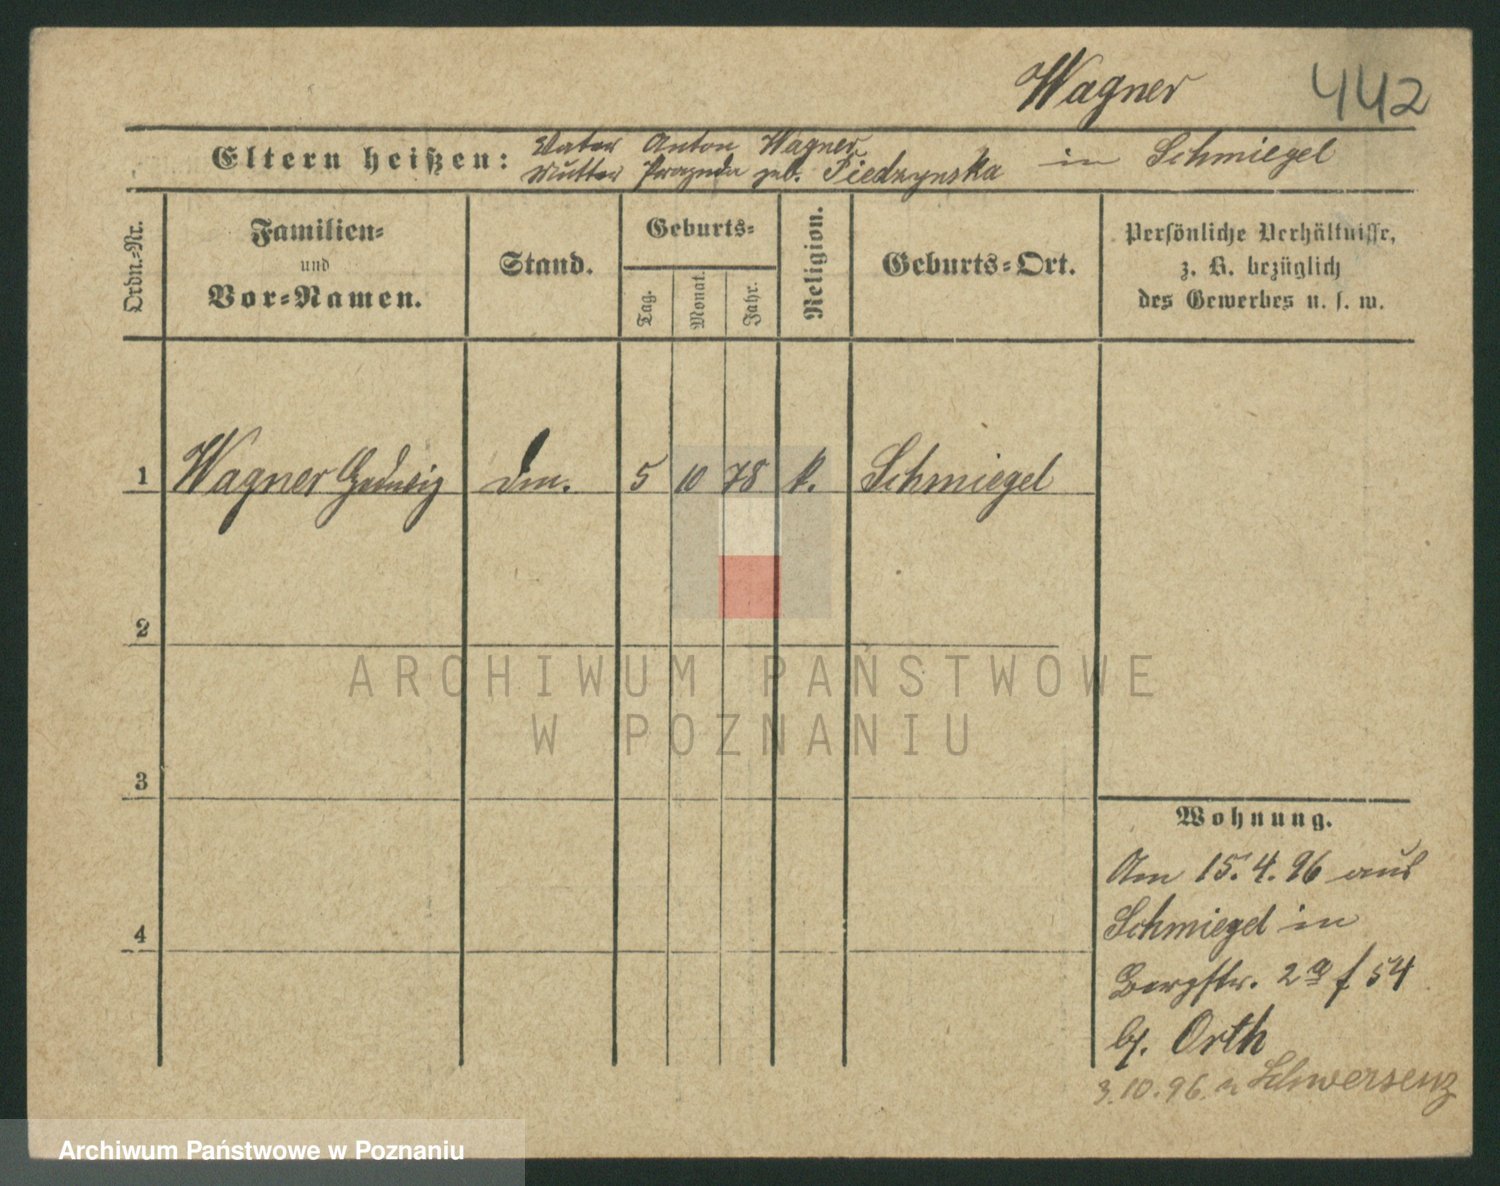 Wagner 442
Eltern heißen: Vater Anton Wagner in Schmiegel
Mutter geb. Piedzynska
Ordn.-Nr.
Familien-
und
Vor-Namen.
Stand.
Geburts-
Tag.
Monat.
Jahr.
Religion.
Geburts-Ort.
Persönliche Verhältnisse,
z. B. bezüglich
des Gewerbes u. s. w.
1 Wagner Hedwig 5 10 78 k. Schmiegel
2
3
4
Wohnung.
Am 15.4.96 aus
Schmiegel in
Bergstr. 2a f 54
b/. Orth
3.10.96. n Schwersenz
ARCHIWUM PAŃSTWOWE
W POZNANIU
Archiwum Państwowe w Poznaniu